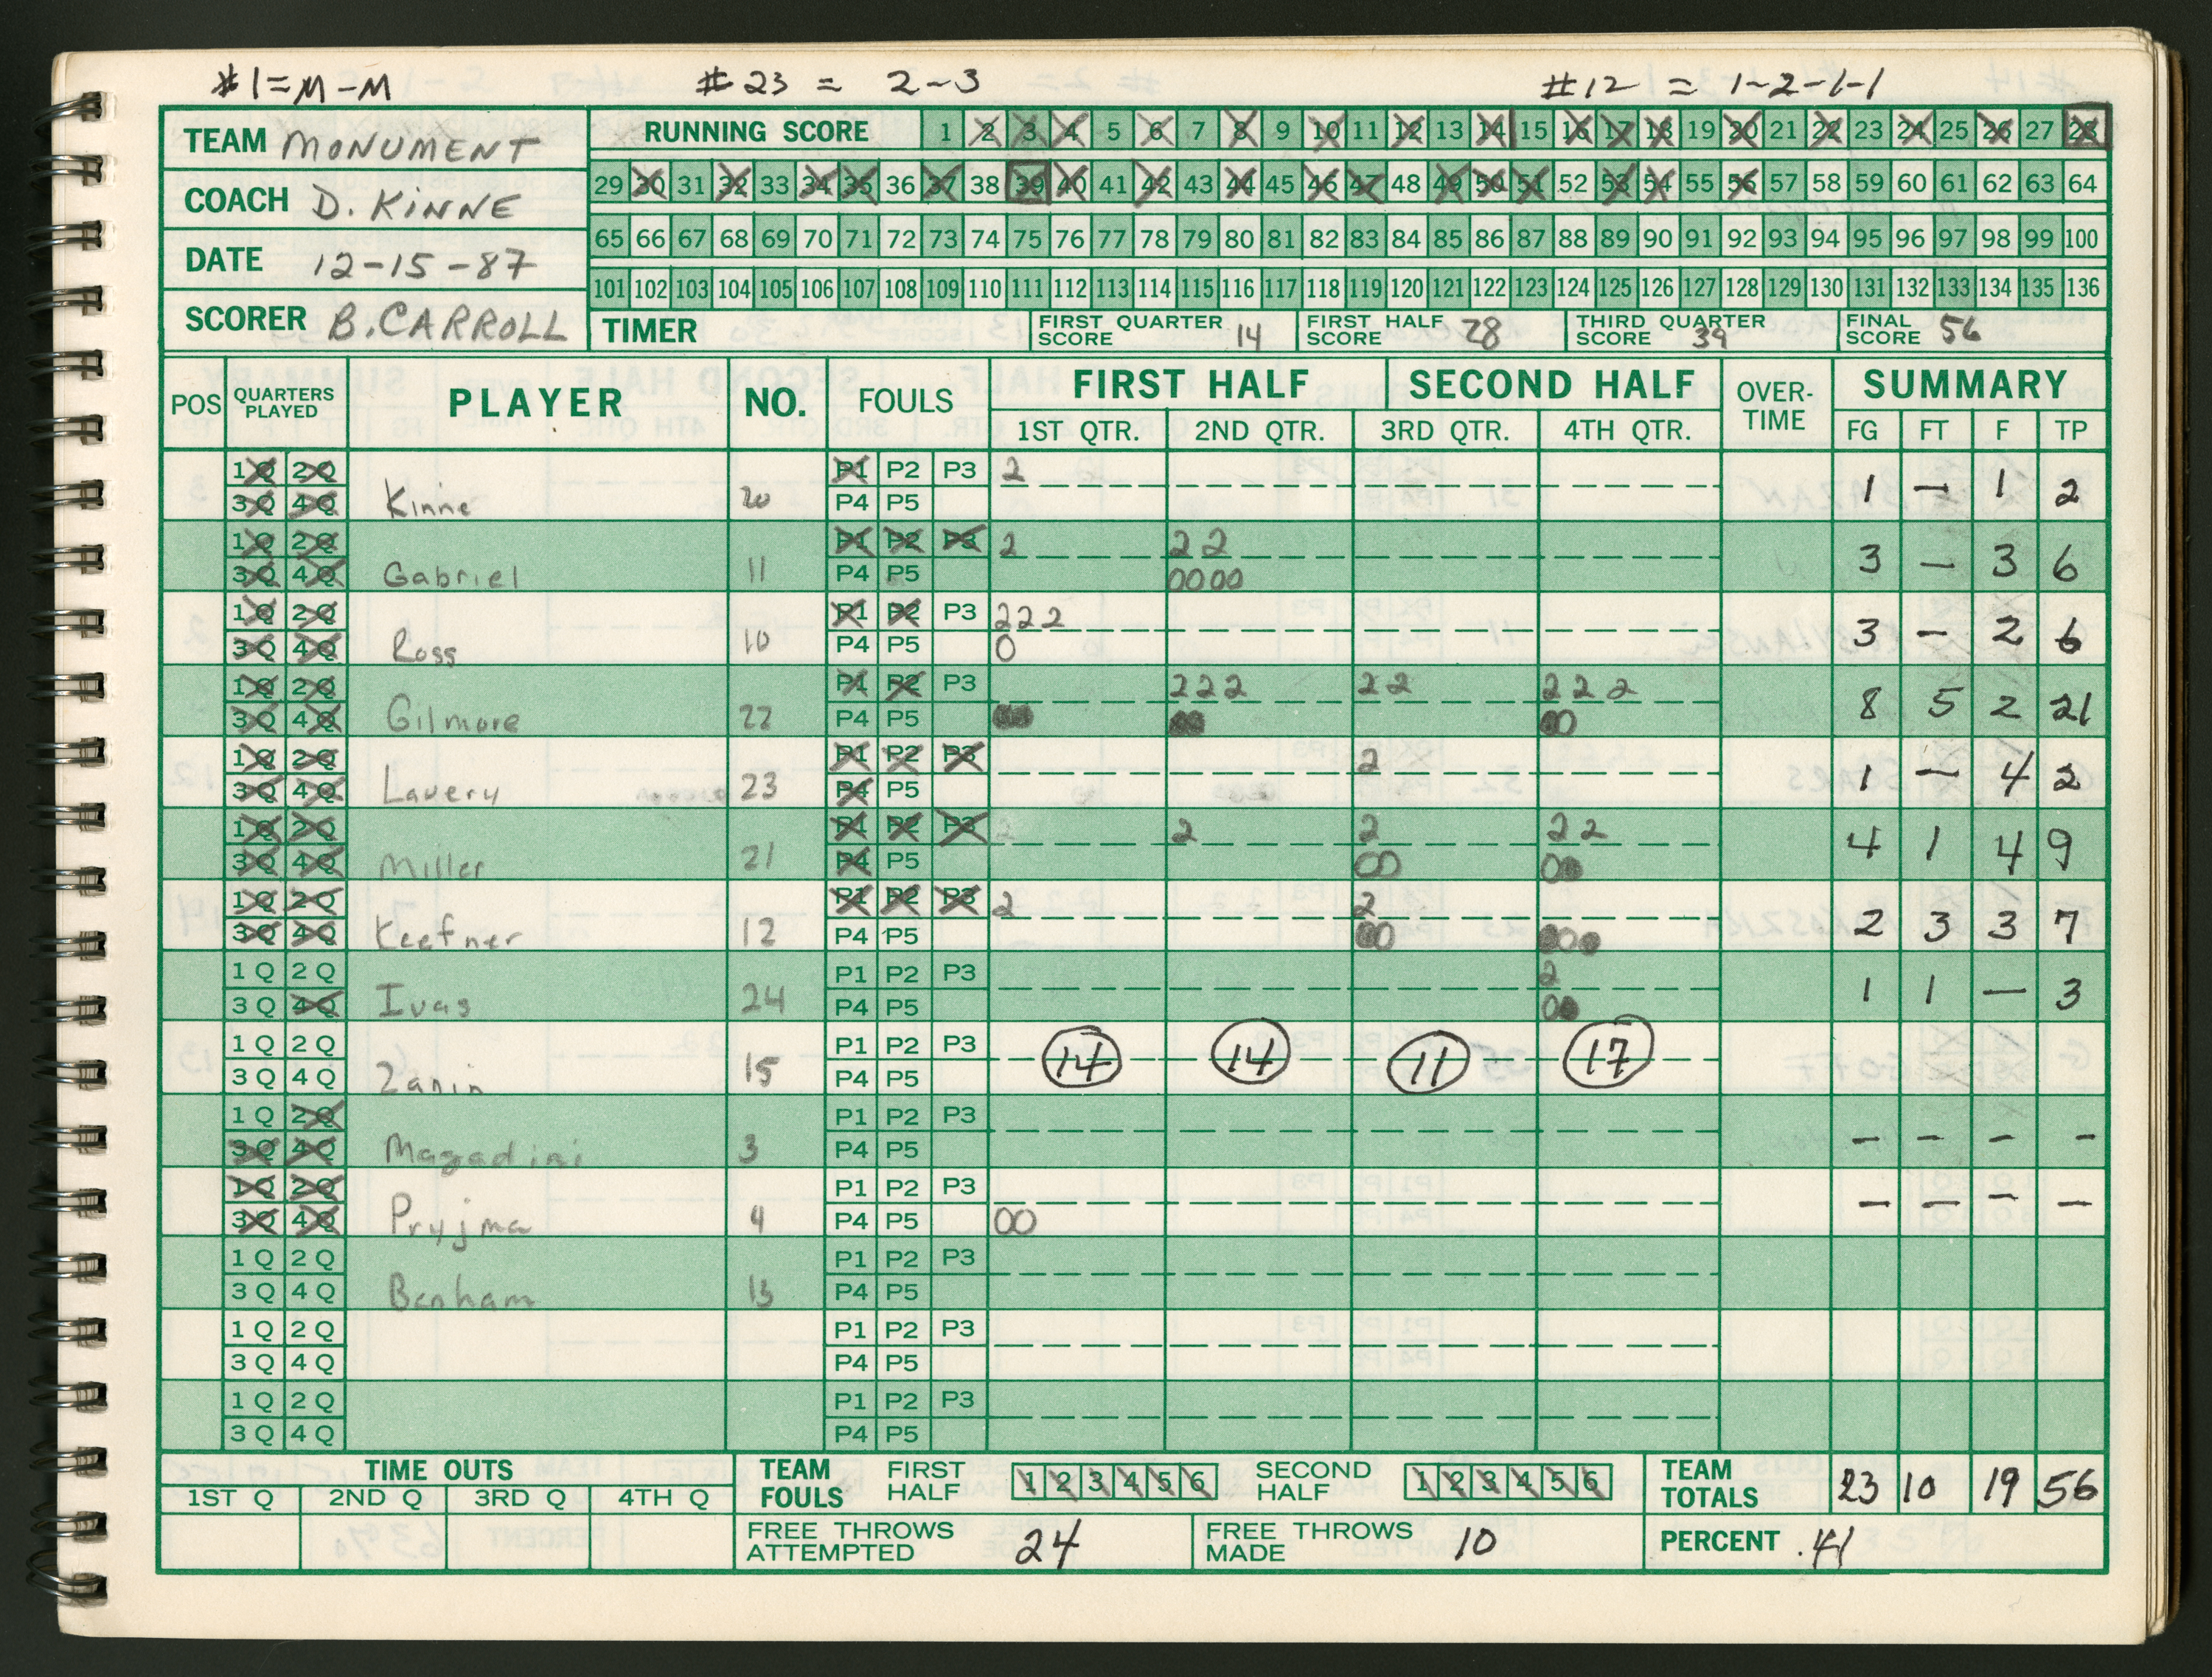 #1=M-M #23 = 2-3 #12 = 1-2-1-1
TEAM MONUMENT
COACH D. KINNE
DATE 12-15-87
SCORER B. CARROLL
RUNNING SCORE 1 2 3 4 5 6 7 8 9 10 11 12 13 14 15 16 17 18 19 20 21 22 23 24 25 26 27 28
29 30 31 32 33 34 35 36 37 38 39 40 41 42 43 44 45 46 47 48 49 50 51 52 53 54 55 56 57 58 59 60 61 62 63 64
65 66 67 68 69 70 71 72 73 74 75 76 77 78 79 80 81 82 83 84 85 86 87 88 89 90 91 92 93 94 95 96 97 98 99 100
101 102 103 104 105 106 107 108 109 110 111 112 113 114 115 116 117 118 119 120 121 122 123 124 125 126 127 128 129 130 131 132 133 134 135 136
TIMER FIRST QUARTER SCORE 14 FIRST HALF SCORE 28 THIRD QUARTER SCORE 39 FINAL SCORE 56
POS QUARTERS PLAYED PLAYER NO. FOULS FIRST HALF SECOND HALF OVER-TIME SUMMARY
1ST QTR. 2ND QTR. 3RD QTR. 4TH QTR. FG FT F TP
1Q 2Q P1 P2 P3 2
3Q 4Q Kinne 20 P4 P5 1 - 1 2
1Q 2Q P1 P2 P3 2 2 2
3Q 4Q Gabriel 11 P4 P5 0000 3 - 3 6
1Q 2Q P1 P2 P3 2 2 2
3Q 4Q Ross 10 P4 P5 0 3 - 2 6
1Q 2Q P1 P2 P3 2 2 2 2 2 2 2 2
3Q 4Q Gilmore 22 P4 P5 00 00 00 8 5 2 21
1Q 2Q P1 P2 P3 2
3Q 4Q Lavery 23 P4 P5 1 - 4 2
1Q 2Q P1 P2 P3 2 2 2 2
3Q 4Q Miller 21 P4 P5 00 00 4 1 4 9
1Q 2Q P1 P2 P3 2 2
3Q 4Q Keefner 12 P4 P5 00 000 2 3 3 7
1Q 2Q P1 P2 P3 2
3Q 4Q Ivas 24 P4 P5 00 1 1 - 3
1Q 2Q P1 P2 P3 14 14 11 17
3Q 4Q Zanin 15 P4 P5
1Q 2Q P1 P2 P3
3Q 4Q Magadini 3 P4 P5 - - - -
1Q 2Q P1 P2 P3
3Q 4Q Pryjma 4 P4 P5 00 - - - -
1Q 2Q P1 P2 P3
3Q 4Q Benham 13 P4 P5
1Q 2Q P1 P2 P3
3Q 4Q P4 P5
1Q 2Q P1 P2 P3
3Q 4Q P4 P5
TIME OUTS
1ST Q 2ND Q 3RD Q 4TH Q
TEAM FOULS FIRST HALF 1 2 3 4 5 6 SECOND HALF 1 2 3 4 5 6 TEAM TOTALS 23 10 19 56
FREE THROWS ATTEMPTED 24 FREE THROWS MADE 10 PERCENT .41